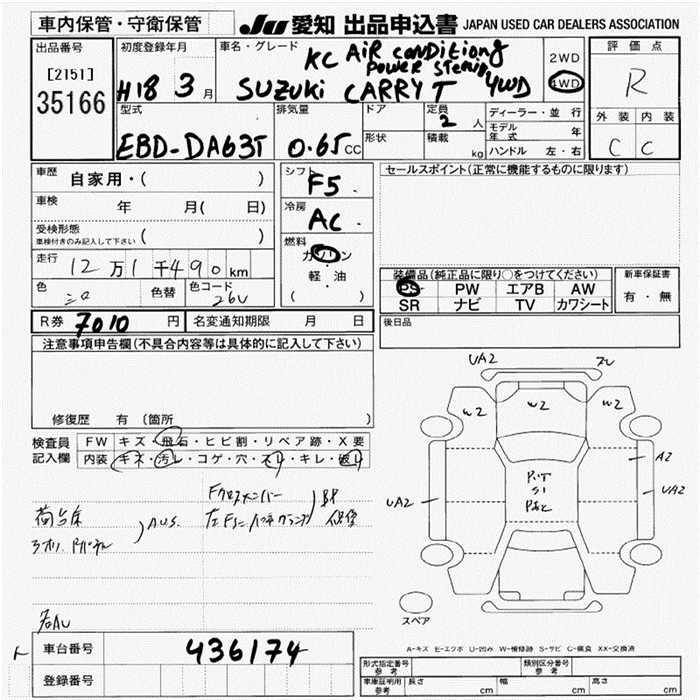 車内保管・守衛保管
JU 愛知 出品申込書 JAPAN USED CAR DEALERS ASSOCIATION
出品番号
[2151]
35166
初度登録年月
H18 3 月
車名・グレード
KC AiR conditiong
Power steriny
SUZUKi CARRY T 4WD
2WD
4WD
評価点
R
外装 内装
C C
型式
EBD-DA63T
排気量
0.65 CC
ドア
形状
定員
2 人
積載
kg
ディーラー・並行
モデル年式 年
ハンドル 左・右
車歴 自家用・( )
車検 年 月( 日)
受検形態
車検付きのみ記入して下さい ( )
走行 12 万 1 千 490 km
色 シロ 色替 色コード 26U
シフト
F5
冷房
AC
燃料
ガソリン
・
軽・油
( )
セールスポイント(正常に機能するものに限ります)
装備品(純正品に限り○をつけてください)
PS PW エアB AW
SR ナビ TV カワシート
新車保証書
有・無
R券 7010 円 名変通知期限 月 日
後日品
注意事項申告欄(不具合内容等は具体的に記入して下さい)
修復歴 有 (箇所 )
検査員
記入欄
FW キズ・飛石・ヒビ割・リペア跡・X要
内装 キズ・汚レ・コゲ・穴・スレ・キレ・返し
荷台床
AUS.
Fクロスメンバー
UA2
W2
W2
W2
A2
UA2
UA2
P.I.T
S1
スペア
A-キズ E-エクボ U-凹み W-補修跡 S-サビ C-腐食 XX-交換済
車台番号 436174
登録番号
形式指定番号
参考
類別区分番号
参考
車庫証明用
参考
長さ cm 幅 cm 高さ cm